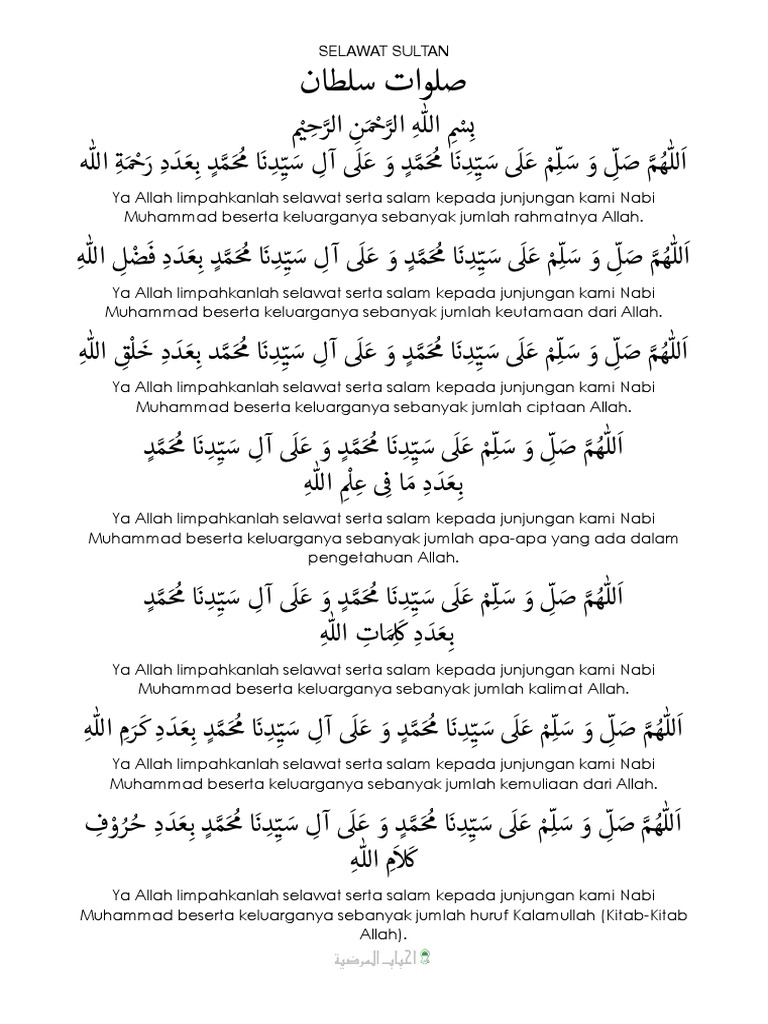 SELAWAT SULTAN
صلوات سلطان
بِسْمِ اللهِ الرَّحْمَنِ الرَّحِيْمِ
اَللّٰهُمَّ صَلِّ وَ سَلِّمْ عَلَى سَيِّدِنَا مُحَمَّدٍ وَ عَلَى آلِ سَيِّدِنَا مُحَمَّدٍ بِعَدَدِ رَحْمَةِ الله
Ya Allah limpahkanlah selawat serta salam kepada junjungan kami Nabi
Muhammad beserta keluarganya sebanyak jumlah rahmatnya Allah.
اَللّٰهُمَّ صَلِّ وَ سَلِّمْ عَلَى سَيِّدِنَا مُحَمَّدٍ وَ عَلَى آلِ سَيِّدِنَا مُحَمَّدٍ بِعَدَدِ فَضْلِ اللهِ
Ya Allah limpahkanlah selawat serta salam kepada junjungan kami Nabi
Muhammad beserta keluarganya sebanyak jumlah keutamaan dari Allah.
اَللّٰهُمَّ صَلِّ وَ سَلِّمْ عَلَى سَيِّدِنَا مُحَمَّدٍ وَ عَلَى آلِ سَيِّدِنَا مُحَمَّد بِعَدَدِ خَلْقِ اللهِ
Ya Allah limpahkanlah selawat serta salam kepada junjungan kami Nabi
Muhammad beserta keluarganya sebanyak jumlah ciptaan Allah.
اَللّٰهُمَّ صَلِّ وَ سَلِّمْ عَلَى سَيِّدِنَا مُحَمَّدٍ وَ عَلَى آلِ سَيِّدِنَا مُحَمَّدٍ
بِعَدَدِ مَا فِى عِلْمِ اللهِ
Ya Allah limpahkanlah selawat serta salam kepada junjungan kami Nabi
Muhammad beserta keluarganya sebanyak jumlah apa-apa yang ada dalam
pengetahuan Allah.
اَللّٰهُمَّ صَلِّ وَ سَلِّمْ عَلَى سَيِّدِنَا مُحَمَّدٍ وَ عَلَى آلِ سَيِّدِنَا مُحَمَّدٍ
بِعَدَدِ كَلِمَاتِ اللهِ
Ya Allah limpahkanlah selawat serta salam kepada junjungan kami Nabi
Muhammad beserta keluarganya sebanyak jumlah kalimat Allah.
اَللّٰهُمَّ صَلِّ وَ سَلِّمْ عَلَى سَيِّدِنَا مُحَمَّدٍ وَ عَلَى آلِ سَيِّدِنَا مُحَمَّدٍ بِعَدَدِ كَرَمِ اللهِ
Ya Allah limpahkanlah selawat serta salam kepada junjungan kami Nabi
Muhammad beserta keluarganya sebanyak jumlah kemuliaan dari Allah.
اَللّٰهُمَّ صَلِّ وَ سَلِّمْ عَلَى سَيِّدِنَا مُحَمَّدٍ وَ عَلَى آلِ سَيِّدِنَا مُحَمَّدٍ بِعَدَدِ حُرُوْفِ
كَلاَمِ اللهِ
Ya Allah limpahkanlah selawat serta salam kepada junjungan kami Nabi
Muhammad beserta keluarganya sebanyak jumlah huruf Kalamullah (Kitab-Kitab
Allah).
المرضية